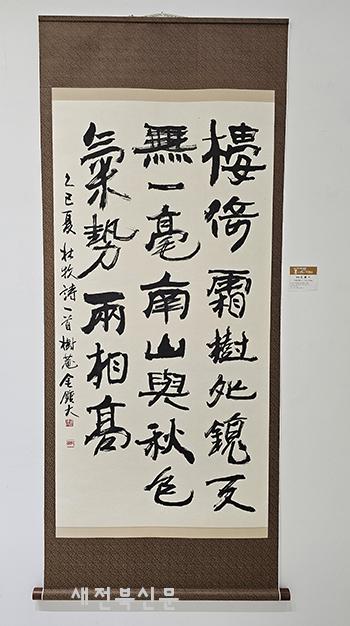 樓倚霜樹外鏡天
無一毫南山與秋色
氣勢兩相高
乙巳夏 杜牧詩一首 樹菴 金
새전북신문